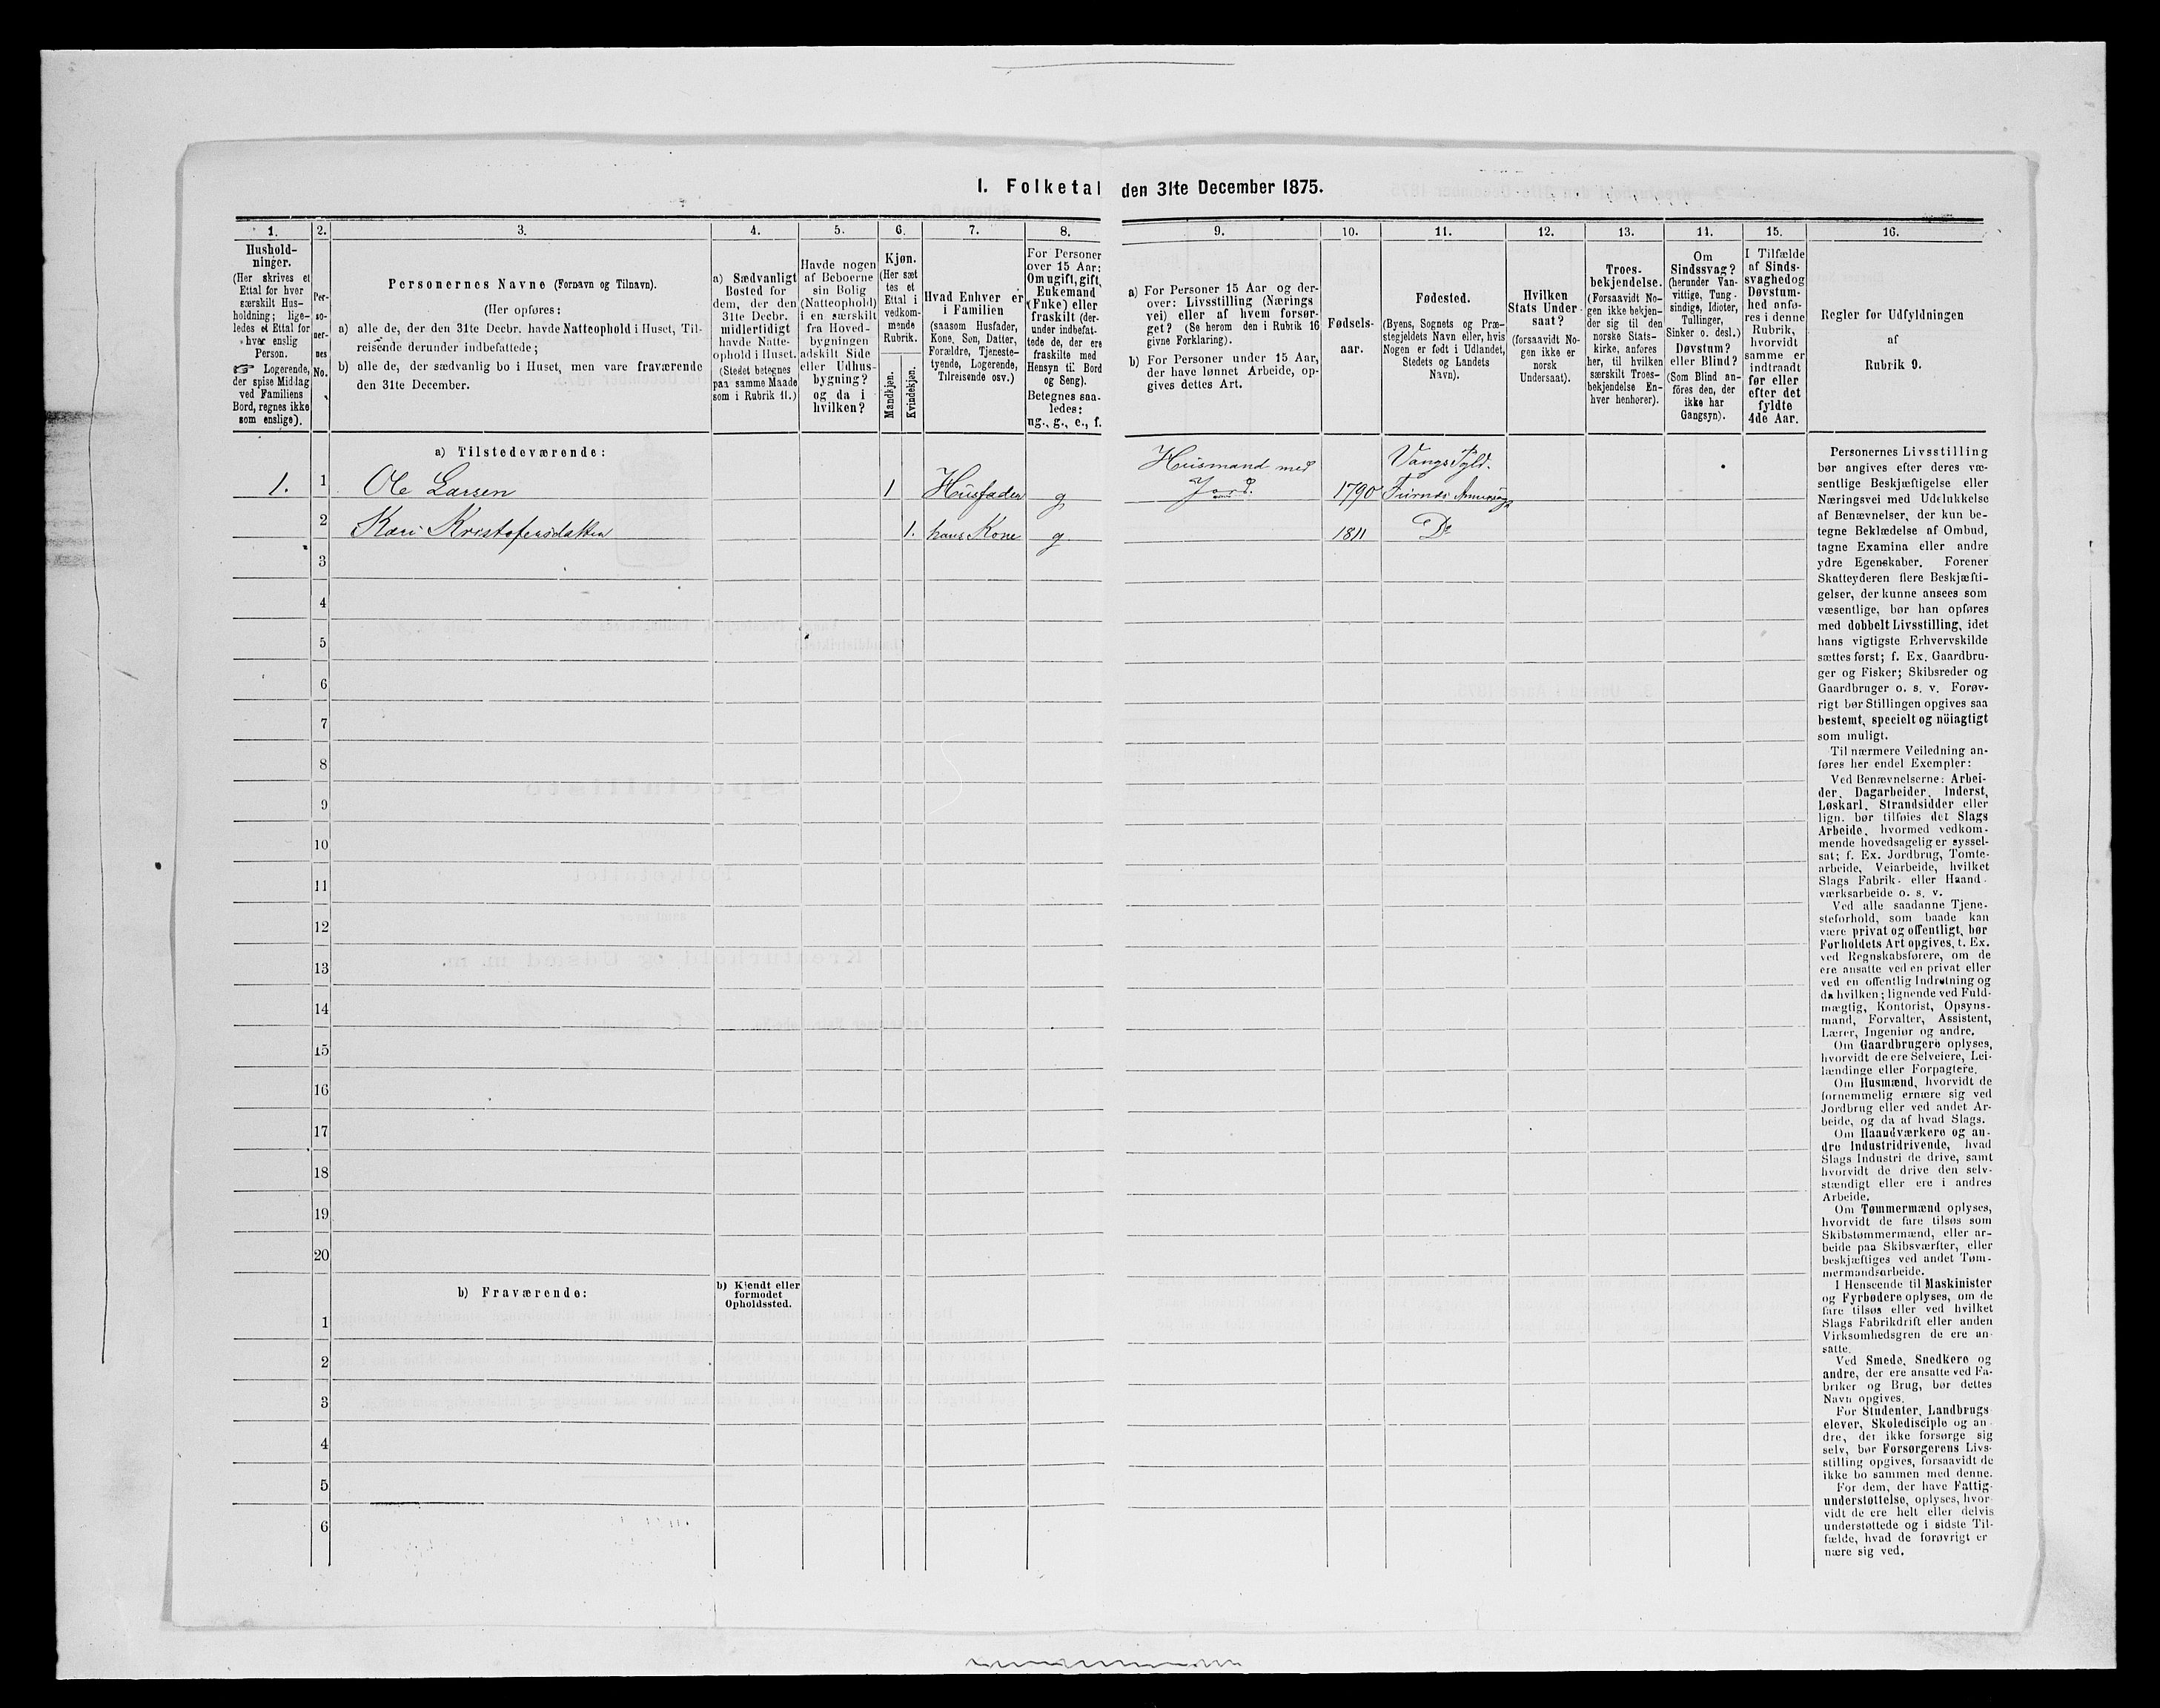 I. Folketal den 31te December 1875.
1.
Hushold-
ninger.
(Her skrives et
Ettal for hver
særskilt Hus-
holdning; lige-
ledes et Ettal for
hver enslig
Person.
☞ Logerende,
der spise Middag
ved Familiens
Bord, regnes ikke
som enslige).
2.
Per-
so-
ner-
nes
No.
3.
Personernes Navne (Fornavn og Tilnavn).
(Her opføres:
a) alle de, der den 31te Decbr. havde Natteophold i Huset, Til-
reisende derunder indbefattede;
b) alle de, der sædvanlig bo i Huset, men vare fraværende
den 31te December.
4.
a) Sædvanligt
Bosted for
dem, der den
31te Decbr.
midlertidigt
havde Natte-
ophold i Huset.
(Stedet betegnes
paa samme Maade
som i Rubrik 11.)
5.
Havde nogen
af Beboerne
sin Bolig
(Natteophold)
i en særskilt
fra Hoved-
bygningen
adskilt Side
eller Udhus-
bygning?
og da i
hvilken?
6.
Kjøn.
(Her sæt
tes et
Ettal i
vedkom-
mende
Rubrik.
Mandkjøn.
Kvindekjøn.
7.
Hvad Enhver er
i Familien
(saasom Husfader,
Kone, Søn, Datter,
Forældre, Tjeneste-
tyende, Logerende,
Tilreisende osv.)
8.
For Personer
over 15 Aar:
Om ugift, gift,
Enkemand
(Enke) eller
fraskilt (der-
under indbefat-
tede de, der ere
fraskilte med
Hensyn til Bord
og Seng).
Betegnes saa-
ledes:
ug., g., e., f.
9.
a) For Personer 15 Aar og der-
over: Livsstilling (Nærings
vei) eller af hvem forsør-
get? (Se herom den i Rubrik 16
givne Forklaring).
b) For Personer under 15 Aar,
der have lønnet Arbeide, op-
gives dettes Art.
10.
Fødsels-
aar.
11.
Fødested.
(Byens, Sognets og Præ-
stegjeldets Navn eller, hvis
Nogen er født i Udlandet,
Stedets og Landets
Navn).
12.
Hvilken
Stats Under
saat?
(forsaavidt No-
gen ikke er
norsk
Undersaat).
13.
Troes-
bekjendelse.
(Forsaavidt No-
gen ikke bekjen-
der sig til den
norske Stats-
kirke, anføres
her, til hvilken
særskilt Troes-
bekjendelse En-
hver henhører).
14.
Om
Sindssvag?
(herunder Van-
vittige, Tung-
sindige, Idioter,
Tullinger,
Sinker o. desl.)
Døvstum?
eller Blind?
(Som Blind an-
føres den, der
ikke har
Gangsyn).
15.
I Tilfælde
af Sinds-
svaghed og
Døvstum-
hed anfø-
res i denne
Rubrik,
hvorvidt
samme er
indtraadt
før eller
efter det
fyldte
4de Aar.
16.
Regler for Udfyldningen
af
Rubrik 9.
a) Tilstedeværende:
1. 1 Ole Larsen 1 Husfader g Husmand med Jord. 1790 Vangs Pgld. Furnæs
2 Kari Kristofersdatter 1. hans Kone g 1811 Do
3
4
5
6
7
8
9
10
11
12
13
14
15
16
17
18
19
20
b) Fraværende:
b) Kjendt eller
formodet
Opholdssted.
1
2
3
4
5
6
Personernes Livsstilling
bør angives efter deres væ-
sentlige Beskjæftigelse eller
Næringsvei med Udelukkelse
af Benævnelser, der kun be-
tegne Beklædelse af Ombud,
tagne Examina eller andre
ydre Egenskaber. Forener
Skatteyderen flere Beskjæfti-
gelser, der kunne ansees som
væsentlige, bør han opføres
med dobbelt Livsstilling, idet
hans vigtigste Erhvervskilde
sættes først; f. Ex. Gaardbru-
ger og Fisker; Skibsreder og
Gaardbruger o. s. v. Forøv-
rigt bør Stillingen opgives saa
bestemt, specielt og nöiagtigt
som muligt.
Til nærmere Veiledning an-
føres her endel Exempler:
Ved Benævnelserne: Arbei-
der, Dagarbeider, Inderst,
Løskarl, Strandsidder eller
lign. bør tilføies det Slags
Arbeide, hvormed vedkom-
mende hovedsagelig er syssel-
sat; f. Ex. Jordbrug, Tomte-
arbeide, Veiarbeide, hvilket
Slags Fabrik- eller Haand-
værksarbeide o. s. v.
Ved alle saadanne Tjene-
steforhold, som baade kan
være privat og offentligt, bør
Forholdets Art opgives, t. Ex.
ved Regnskabsførere, om de
ere ansatte ved en privat eller
ved en offentlig Indretning og
da hvilken; lignende ved Fuld-
mægtig, Kontorist, Opsyns-
mand, Forvalter, Assistent,
Lærer, Ingeniør og andre.
Om Gaardbrugere oplyses,
hvorvidt de ere Selveiere, Lei-
lændinge eller Forpagtere.
Om Husmænd, hvorvidt de
fornemmelig ernære sig ved
Jordbrug eller ved andet Ar-
beide, og da af hvad Slags.
Om Haandværkere og an-
dre Industridrivende, hvad
Slags Industri de drive, samt
hvorvidt de drive den selv-
stændigt eller ere i andres
Arbeide.
Om Tømmermænd oplyses,
hvorvidt de fare tilsøs som
Skibstømmermænd, eller ar-
beide paa Skibsværfter, eller
beskjæftiges ved andet Tøm-
mermandsarbeide.
I Henseende til Maskinister
og Fyrbødere oplyses, om de
fare tilsøs eller ved hvilket
Slags Fabrikdrift eller anden
Virksomhedsgren de ere an-
satte.
Ved Smede, Snedkere og
andre, der ere ansatte ved Fa-
briker og Brug, bør dettes
Navn opgives.
For Studenter, Landbrugs
elever, Skoledisciple og an-
dre, der ikke forsørge sig
selv, bør Forsørgerens Livs-
stilling opgives, forsaavidt de
ikke bo sammen med denne.
For dem, der have Fattig-
understøttelse, oplyses, hvor-
vidt de ere helt eller delvis
understøttede og i sidste Til-
fælde, hvad de forøvrigt er
nære sig ved.